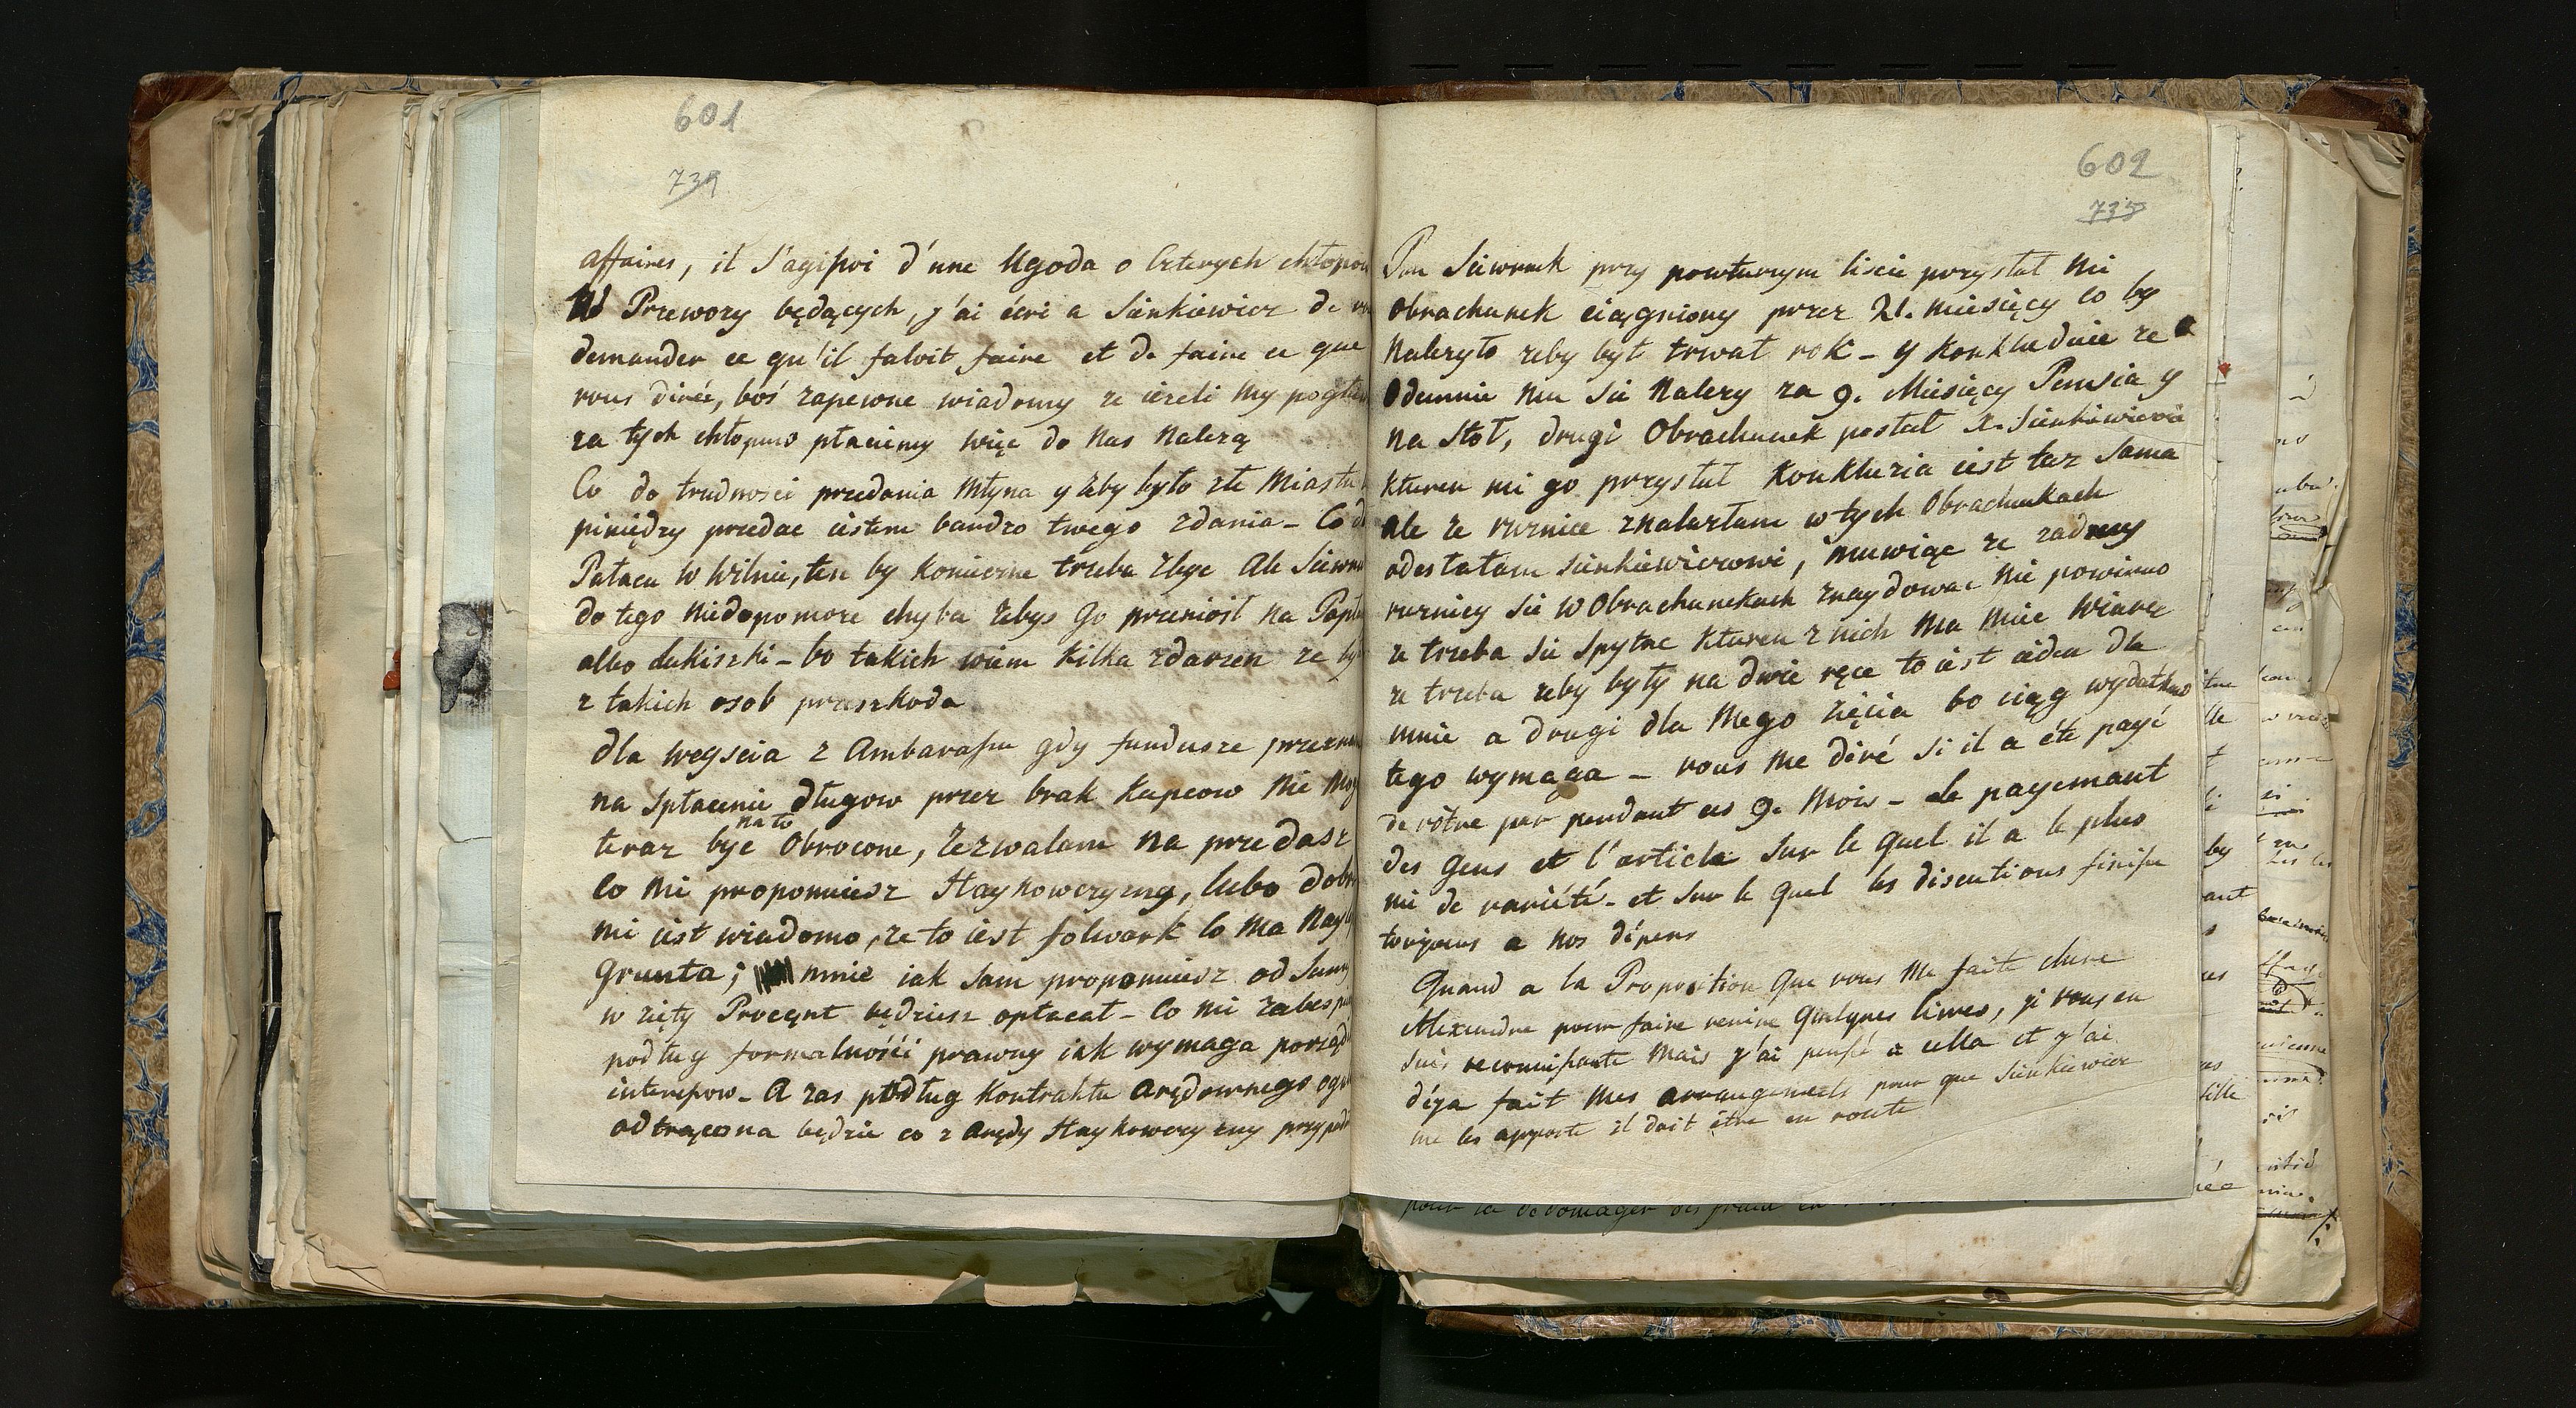 601
739
affaires, il s'agissoi d'une Ugoda o Czterych chłopow
W Przewozy będących, j'ai écri a Sienkiewicz de
demander ce qu'il faloit faire et de faire ce que
vous diréz, boś zapewne wiadomy ze iezeli my pogłu
za tych chłopuw płaciemy więc do nas Nalezą
Co do trudnosci przedania Młyna y zeby było zte Miastu
piniędzy przedac iestem bardzo twego zdania – Co d
Pałacu w Wilnie, ten by koniecznie trzeba zbyc Ale Siewru
do tego niedopomoze chyba zebys go przeniosł na Popła
albo Łukiszki – bo takich wiem kilka zdarzen ze by
z takich osob przeszkoda
dla weyscia z Ambarassu gdy fundusze przezna
na Spłacenie długow przez brak Kupcow Nie Mog
na to
teraz byc Obrocone, Zezwalam na przedasz
Co Mi proponuiesz Haykowczyzny, lubo dobr
mi iest wiadomo, ze to iest folwark Co Ma Nayl
Grunta; mnie iak Sam proponuiesz od Sumy
w zięty Procęnt będziesz opłacał – Co mi zabespie
podług formalnośći prawny iak wymaga porząd
interessow – A zas podług Kontraktu Arędownego ogu
odtrącona będzie co z Arędy Haykowczyzny przypad
602
735
Pan Siewruk przy powturnym liscie przysłał Mi
Obrachunek ciągniony przez 21. Miesięcy Co by
Nalezyło zeby był trwał rok – y Konkluduie ze
Odemnie mu Sie Nalezy za 9. Miesięcy Pensia y
na Stoł, drugi Obrachunek posłał X. Sienkiewiczo
kturen mi go przysłał Konkluzia iest taz Sama
ale ze ruznice znalazłam w tych Obrachunkach
odesłałam Sienkiewiczowi, muwiąc ze zadnny
ruznicy Sie w Obrachunkach znaydowac Nie powinno
ze trzeba Sie Spytac kturen z nich Ma Miec Wiarę
ze trzeba zeby były na dwie ręce to iest ieden dla
mnie a drugi dla Mego Zięcia bo ciąg wydatkuw
tego wymaga – vous me diré Si il a été payé
de vôtre par pendant ces 9. Mois – Le payemant
des gens et l'article Sur le quel il a le plus
mi de variété – et Sur le quel les discutions finisse
toujours a nos dépens
Quand a la Proposition que vous Me faite chere
Alexandre pour faire venire quelques livres, je vous en
Suis reconnissante Mais j'ai pensé a cella et j'ai
déja fait Mes arrangements pour que Sienkiewicz
me les apporte il doit être en route